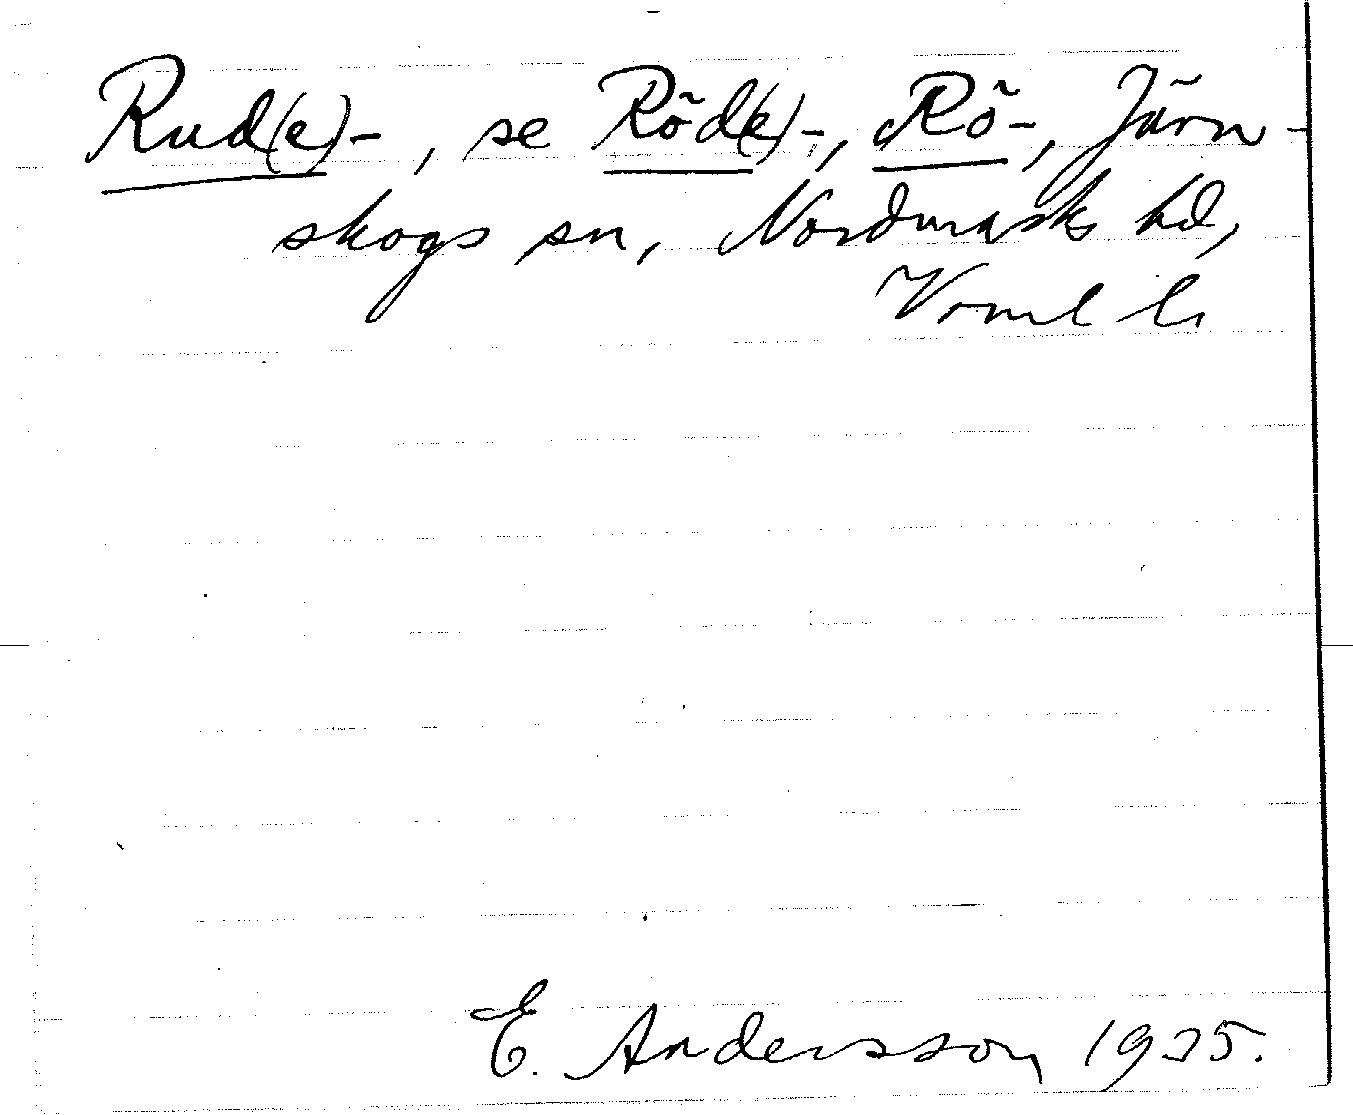 Rud(e)-, se Röd(e)-, Rö-, Järn-
skogs sn, Nordmarks hd,
Vrml l.
E. Andersson 1935.